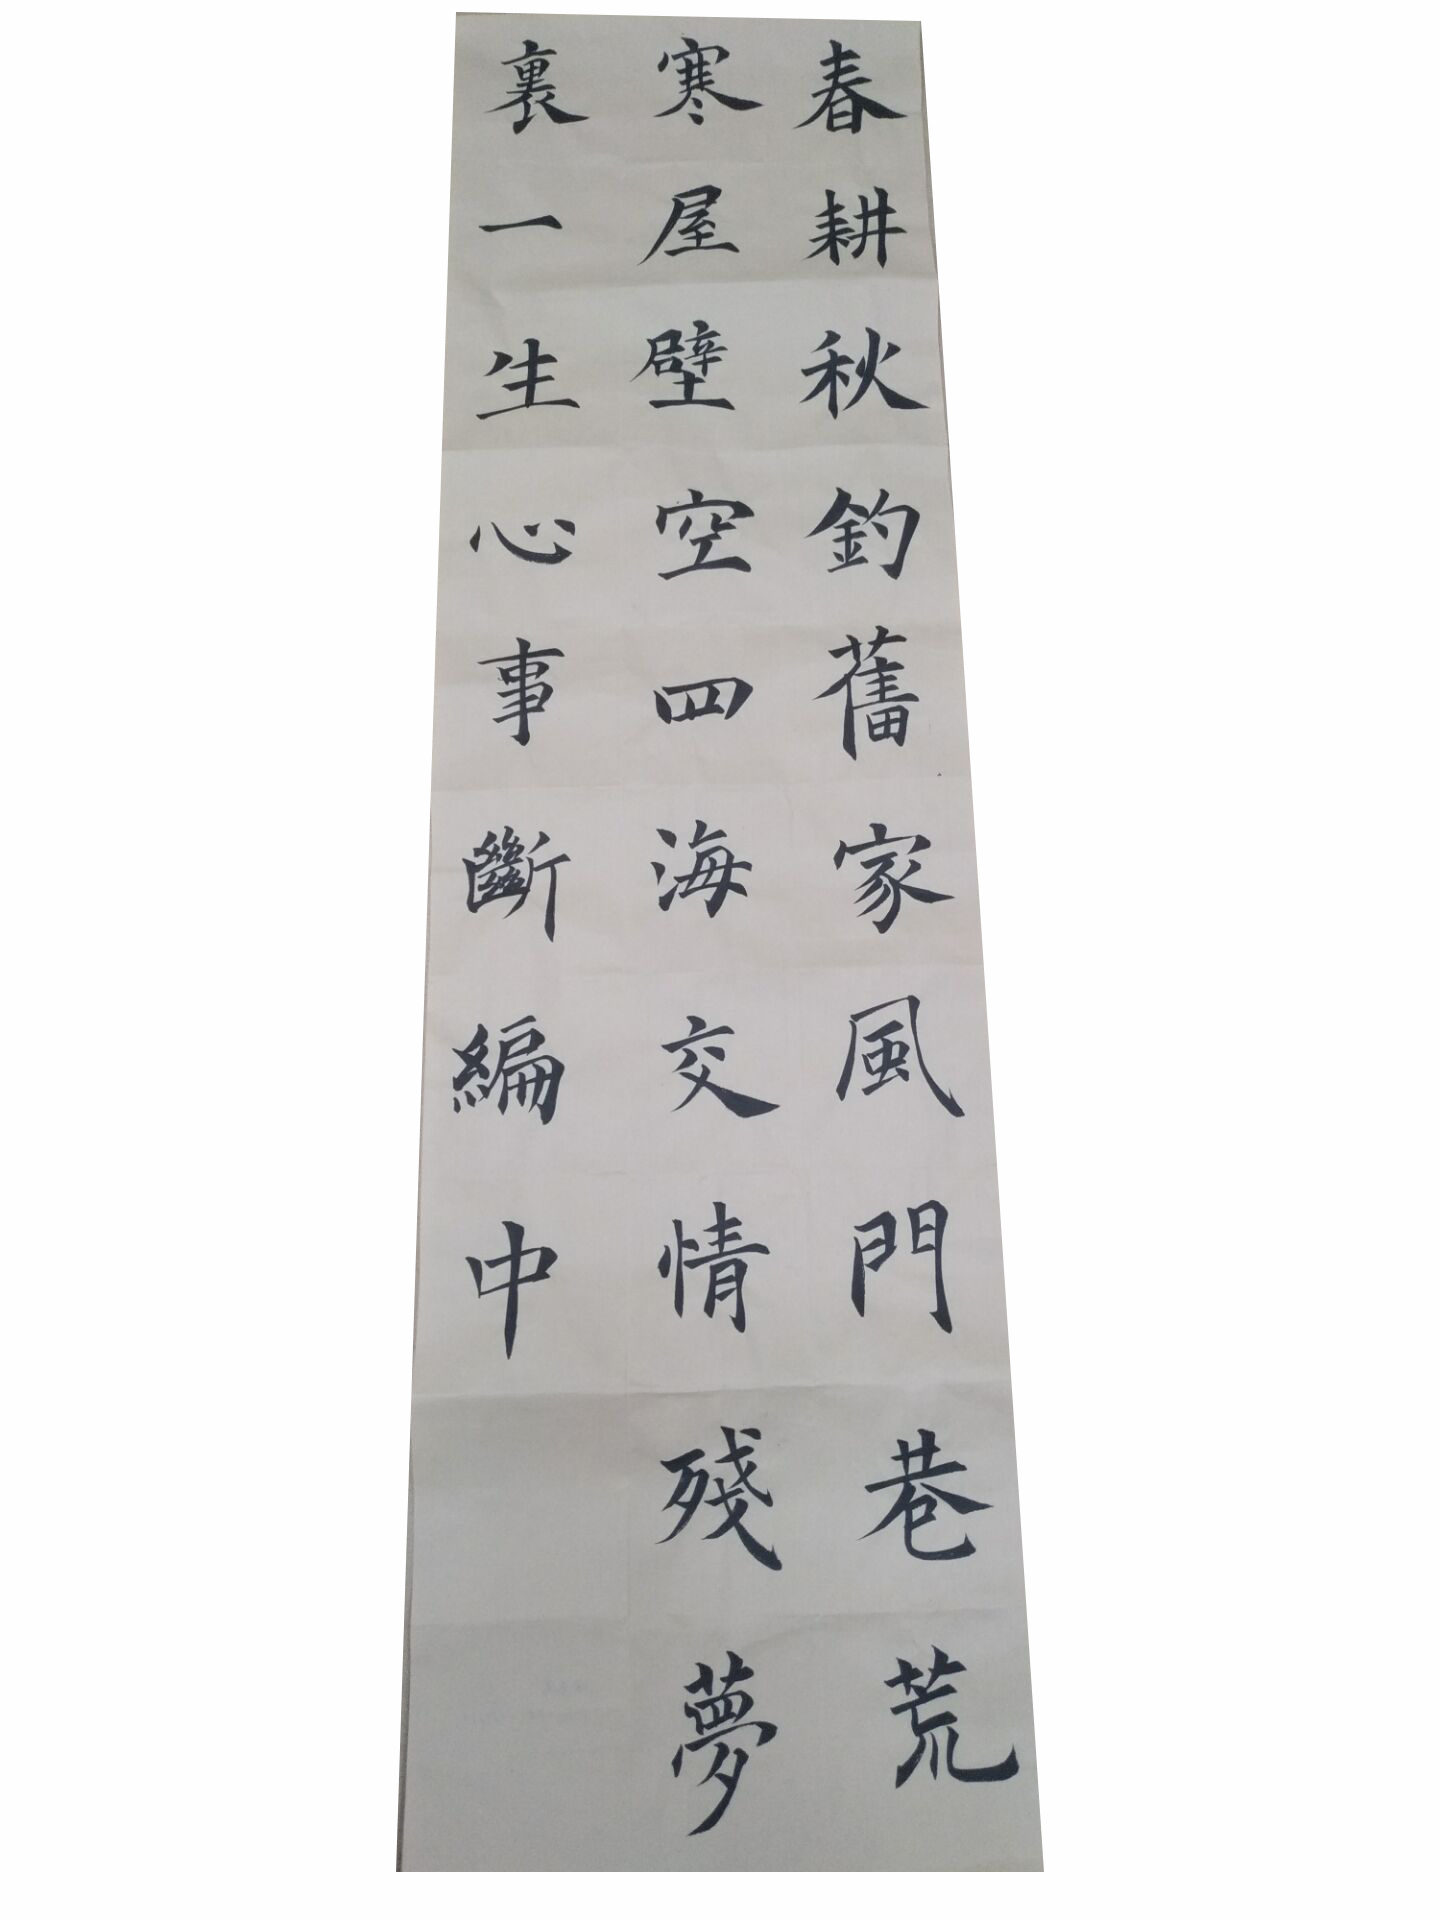 春耕秋釣舊家風門巷荒
寒屋壁空四海交情殘夢
裏一生心事斷編中